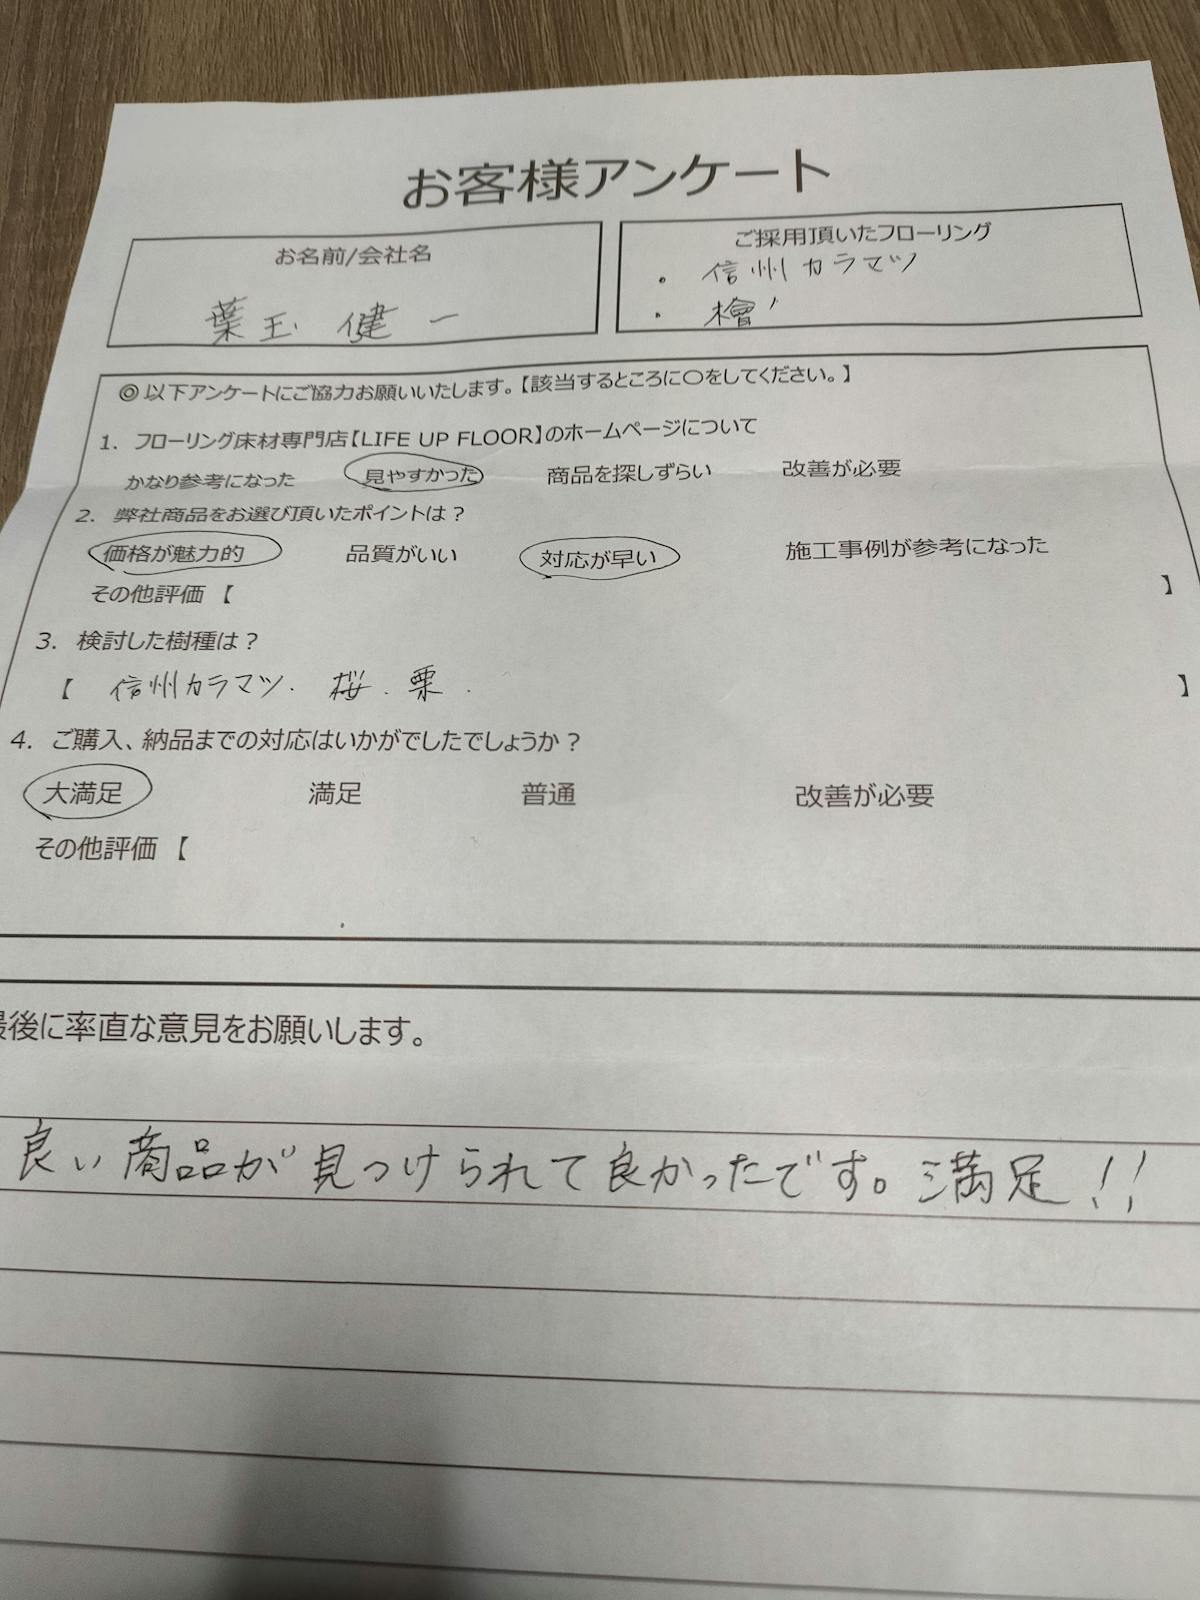 お客様アンケート
お名前/会社名
葉玉 健一
ご採用頂いたフローリング
・ 信州カラマツ
・ 檜
◎以下アンケートにご協力お願いいたします。【該当するところに〇をしてください。】
1. フローリング床材専門店【LIFE UP FLOOR】のホームページについて
かなり参考になった 見やすかった 商品を探しずらい 改善が必要
2. 弊社商品をお選び頂いたポイントは？
価格が魅力的 品質がいい 対応が早い 施工事例が参考になった
その他評価【 】
3. 検討した樹種は？
【 信州カラマツ. 桜. 栗. 】
4. ご購入、納品までの対応はいかがでしたでしょうか？
大満足 満足 普通 改善が必要
その他評価【
最後に率直な意見をお願いします。
良い商品が見つけられて良かったです。満足！！